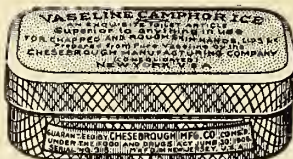 VASELINE CAMPHOR ICE
Superior to anything in use
FOR CHAPPED AND ROUGH SKIN HANDS LIPS &c
Prepared from Pure Vaseline by the
CHESEBROUGH MANUFACTURING COMPANY
(CONSOLIDATED)
NEW YORK U.S.A.
GUARANTEED BY CHESEBROUGH MFG. CO. CONS'D
UNDER THE FOOD AND DRUGS ACT JUNE 30
SERIAL NO.
NEW JERSEY, U.S.A.